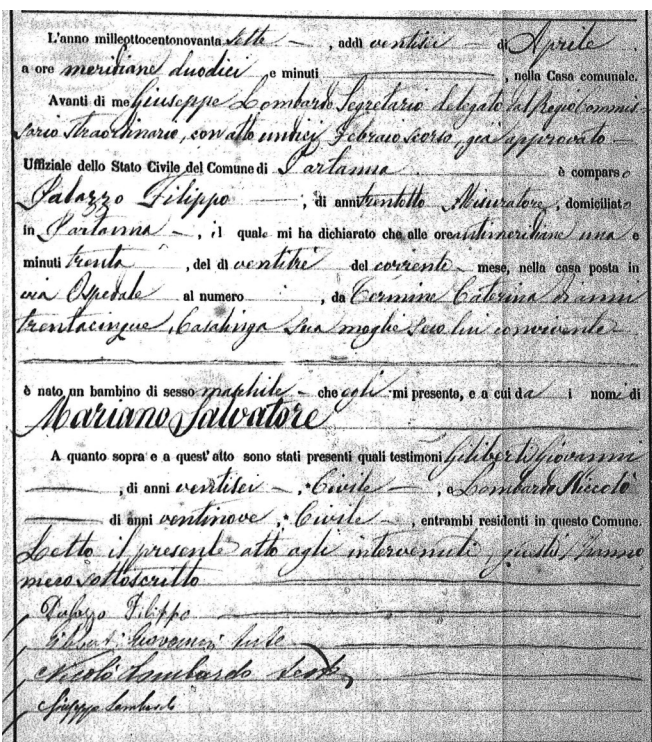 L'anno milleottocentonovanta sette, addì ventisei di Aprile
a ore meridiane duodici e minuti, nella Casa comunale.
Avanti di me Giuseppe Lombardo Segretario delegato dal Regio Commis
sario Straordinario, con atto undici Febraio scorso, già approvato
Uffiziale dello Stato Civile del Comune di Partanna è comparso
Palazzo Filippo, di anni trentotto Misuratore, domiciliato
in Partanna, il quale mi ha dichiarato che alle ore antimeridiane una e
minuti trenta, del dì ventitrè del corrente mese, nella casa posta in
via Ospedale al numero, da Termine Caterina di anni
trentacinque, Casalinga sua moglie seco lui convivente
è nato un bambino di sesso maschile che egli mi presenta, e a cui da i nomi di
Mariano Salvatore
A quanto sopra e a quest'atto sono stati presenti quali testimoni Giliberti Giovanni
, di anni ventisei, Civile, e Lombardo Niccolò
di anni ventinove, Civile, entrambi residenti in questo Comune.
Letto il presente atto agli intervenuti, questi hanno
meco sottoscritto
Palazzo Filippo
Giliberti Giovanni teste
Nicolò Lombardo teste
Giuseppe Lombardo